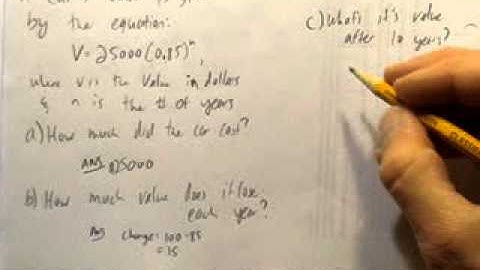 by the equation:
V=25000(0.85)ⁿ
where v is the value in dollars
& n is the # of years
a) How much did the car cost?
Ans 25000
b) How much value does it lose
each year?
Ans change: 100-85
=15
c) What's it's value
after 10 years?